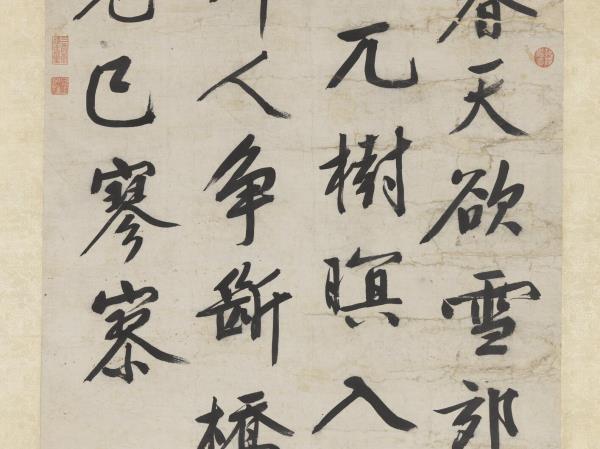 天欲雪郊
兀樹暝入
人争斷橋
已寥